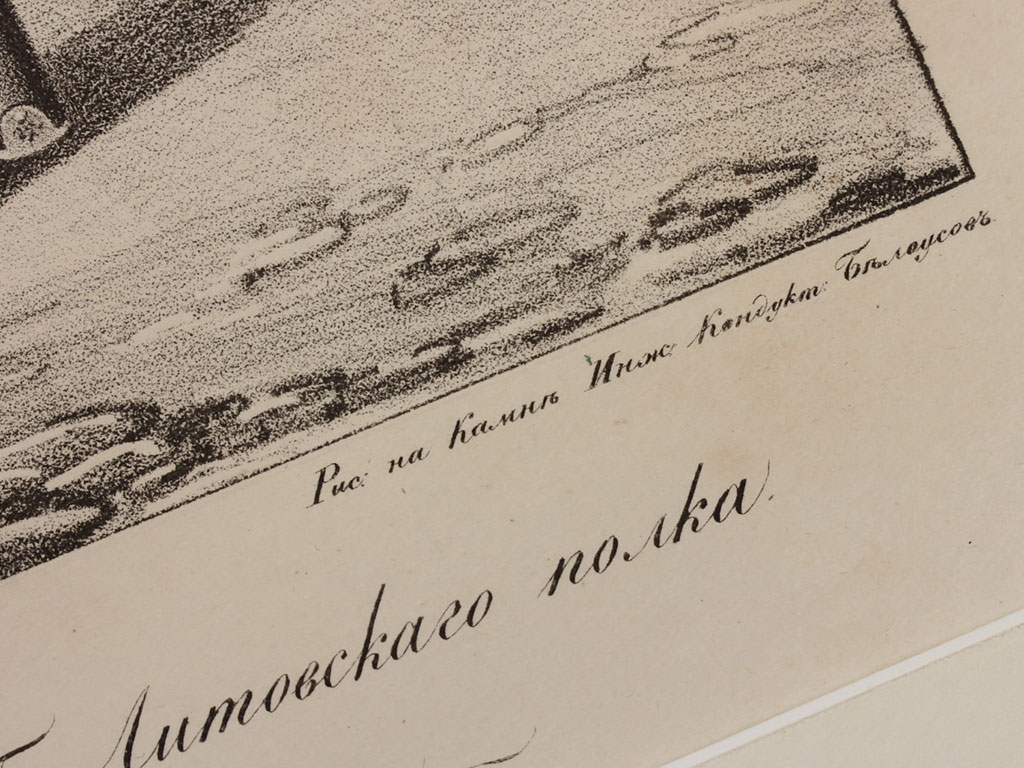 Рис: на Камнѣ Инж: Кондукт: Бѣлоусовъ
Литовскаго полка.